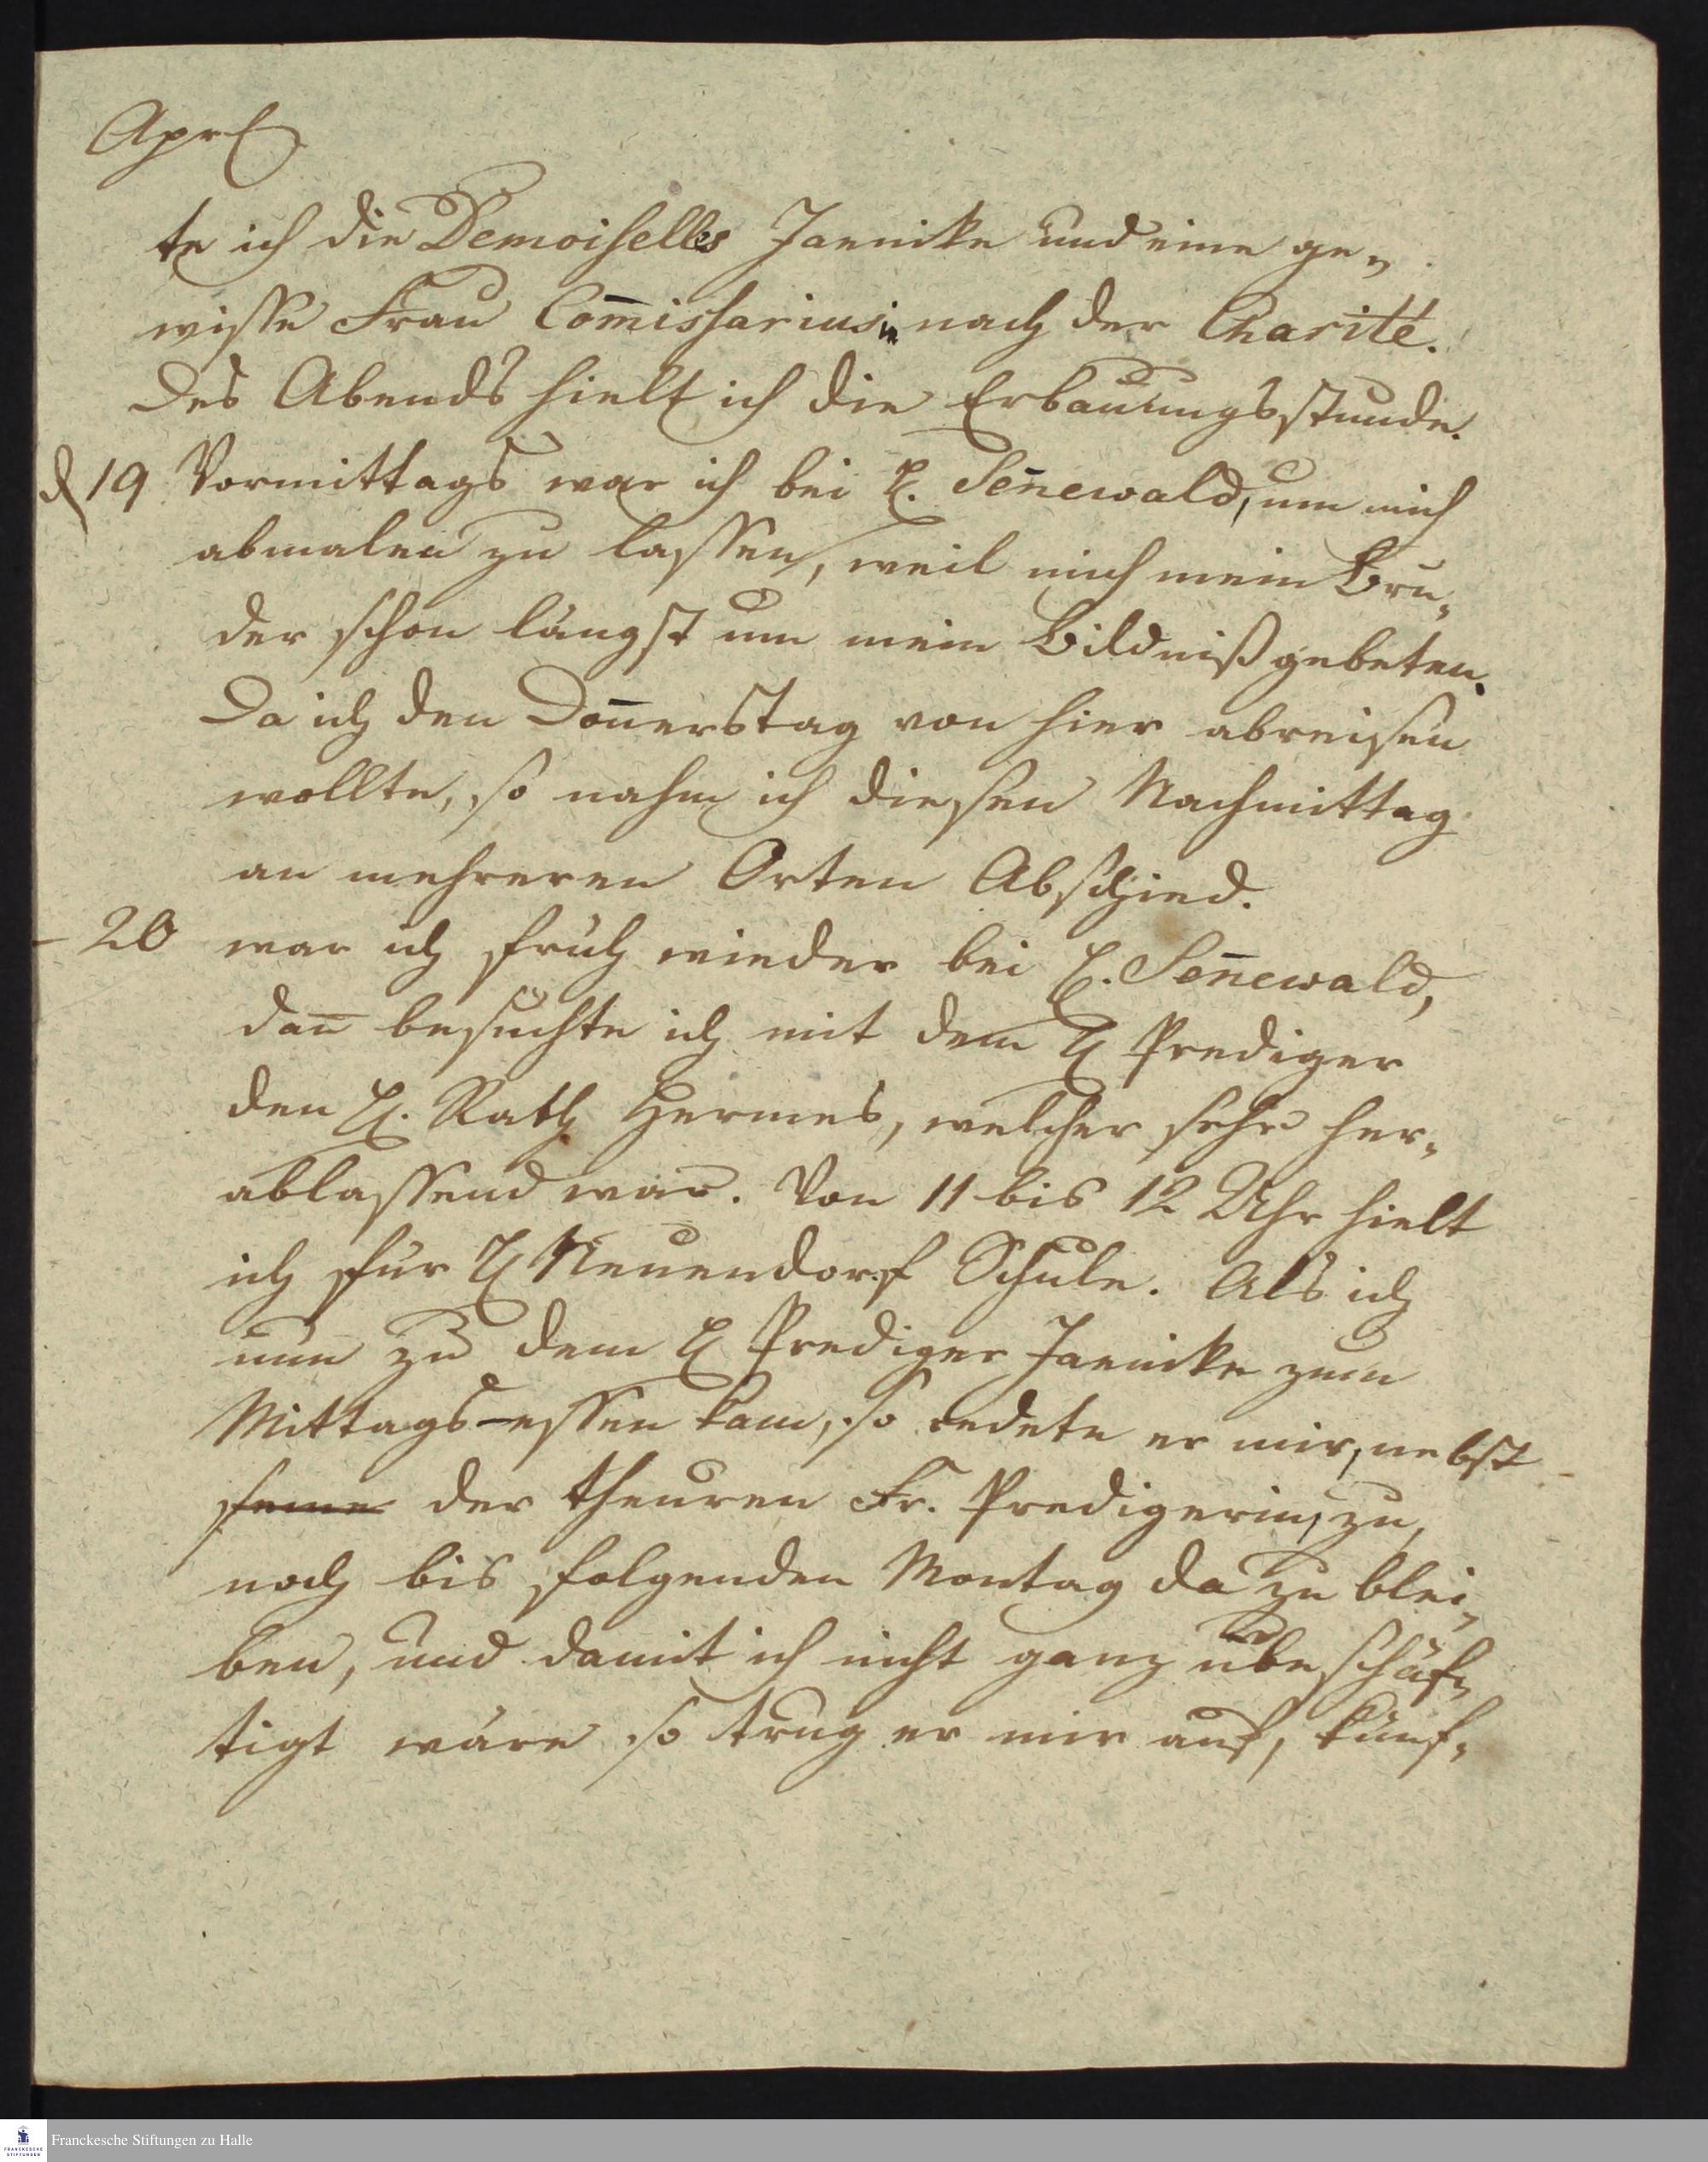 Aprl
te ich die Demoiselles Jaenike und eine ge-
wisse Frau Com̅issariusin nach der Charité.
Des Abends hielt ich die Erbauungsstunde.
d 19 Vormittags war ich bei H. Sen̅ewald, um mich
abmalen zu lassen, weil mich mein Bru-
der schon längst um mein Bildniß gebeten.
Da ich den Don̅erstag von hier abreisen
wollte, so nahm ich diesen Nachmittag
an mehreren Orten Abschied.
- 20 war ich früh wieder bei H. Sen̅ewald,
dan̅ besuchte ich mit dem H Prediger
den H. Rath Hermes, welcher sehr her-
ablassend war. Von 11 bis 12 Uhr hielt
ich für H Neuendorf Schule. Als ich
nun zu dem H Prediger Jaenike zum
Mittags-essen kam, so redete er mir, nebst
seine der theuren Fr. Predigerin, zu,
noch bis folgenden Montag da zu blei-
ben, und damit ich nicht ganz unbeschäf-
tigt wäre so trug er mir auf, künf-
Franckesche Stiftungen zu Halle
FRANCKESCHE
STIFTUNGEN